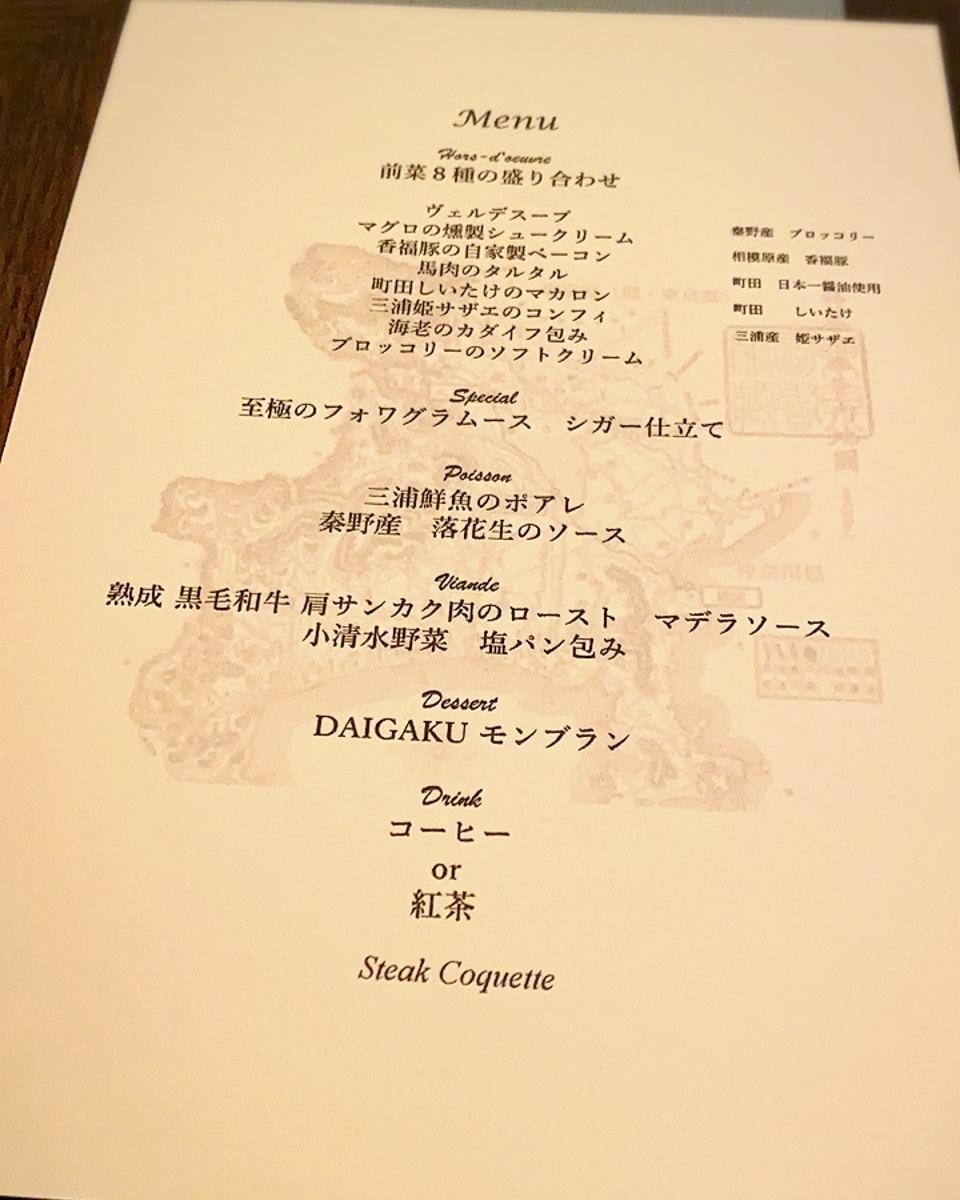 Menu
Hors-d'oeuvre
前菜8種の盛り合わせ
ヴェルデスープ
マグロの燻製シュークリーム
香福豚の自家製ベーコン
馬肉のタルタル
町田しいたけのマカロン
三浦姫サザエのコンフィ
海老のカダイフ包み
ブロッコリーのソフトクリーム
秦野産 ブロッコリー
相模原産 香福豚
町田 日本一醤油使用
町田 しいたけ
三浦産 姫サザエ
Special
至極のフォワグラムース シガー仕立て
Poisson
三浦鮮魚のポアレ
秦野産 落花生のソース
Viande
熟成 黒毛和牛 肩サンカク肉のロースト マデラソース
小清水野菜 塩パン包み
Dessert
DAIGAKU モンブラン
Drink
コーヒー
or
紅茶
Steak Coquette